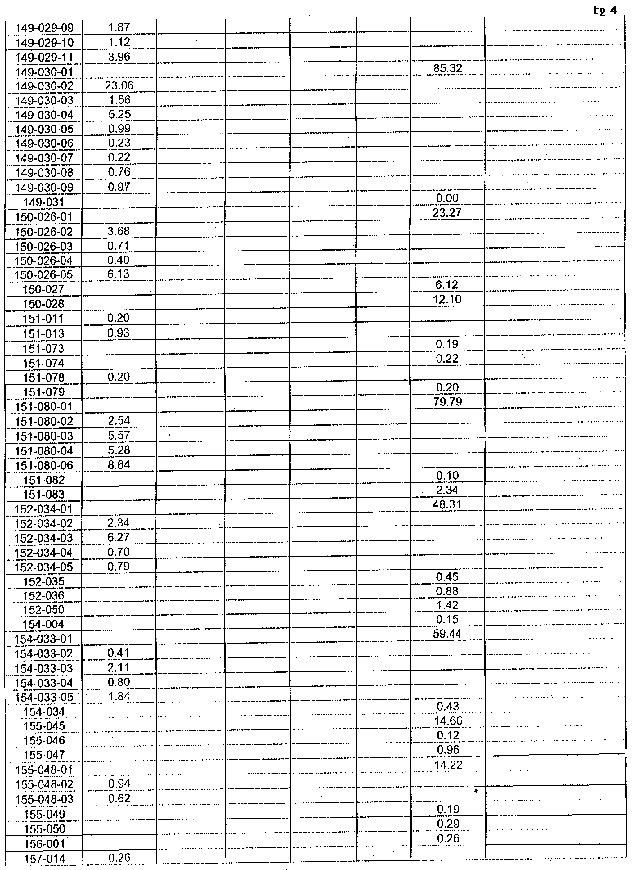 pg 4
149-029-09 1.87
149-029-10 1.12
149-029-11 3.96
149-030-01 85.32
149-030-02 23.06
149-030-03 1.56
149-030-04 5.25
149-030-05 0.99
149-030-06 0.23
149-030-07 0.22
149-030-08 0.76
149-030-09 0.97
149-031 0.00
150-026-01 23.27
150-026-02 3.68
150-026-03 0.71
150-026-04 0.40
150-026-05 6.13
150-027 6.12
150-028 12.10
151-011 0.20
151-013 0.93
151-073 0.19
151-074 0.22
151-078 0.20
151-079 0.20
151-080-01 79.79
151-080-02 2.54
151-080-03 5.57
151-080-04 5.28
151-080-06 8.64
151-082 0.10
151-083 2.34
152-034-01 48.31
152-034-02 2.34
152-034-03 6.27
152-034-04 0.70
152-034-05 0.79
152-035 0.45
152-036 0.88
152-050 1.42
154-004 0.15
154-033-01 59.44
154-033-02 0.41
154-033-03 2.11
154-033-04 0.80
154-033-05 1.84
154-034 0.43
155-045 14.66
155-046 0.12
155-047 0.96
155-048-01 14.22
155-048-02 0.94
155-048-03 0.62
155-049 0.19
155-050 0.29
156-001 0.26
157-014 0.26